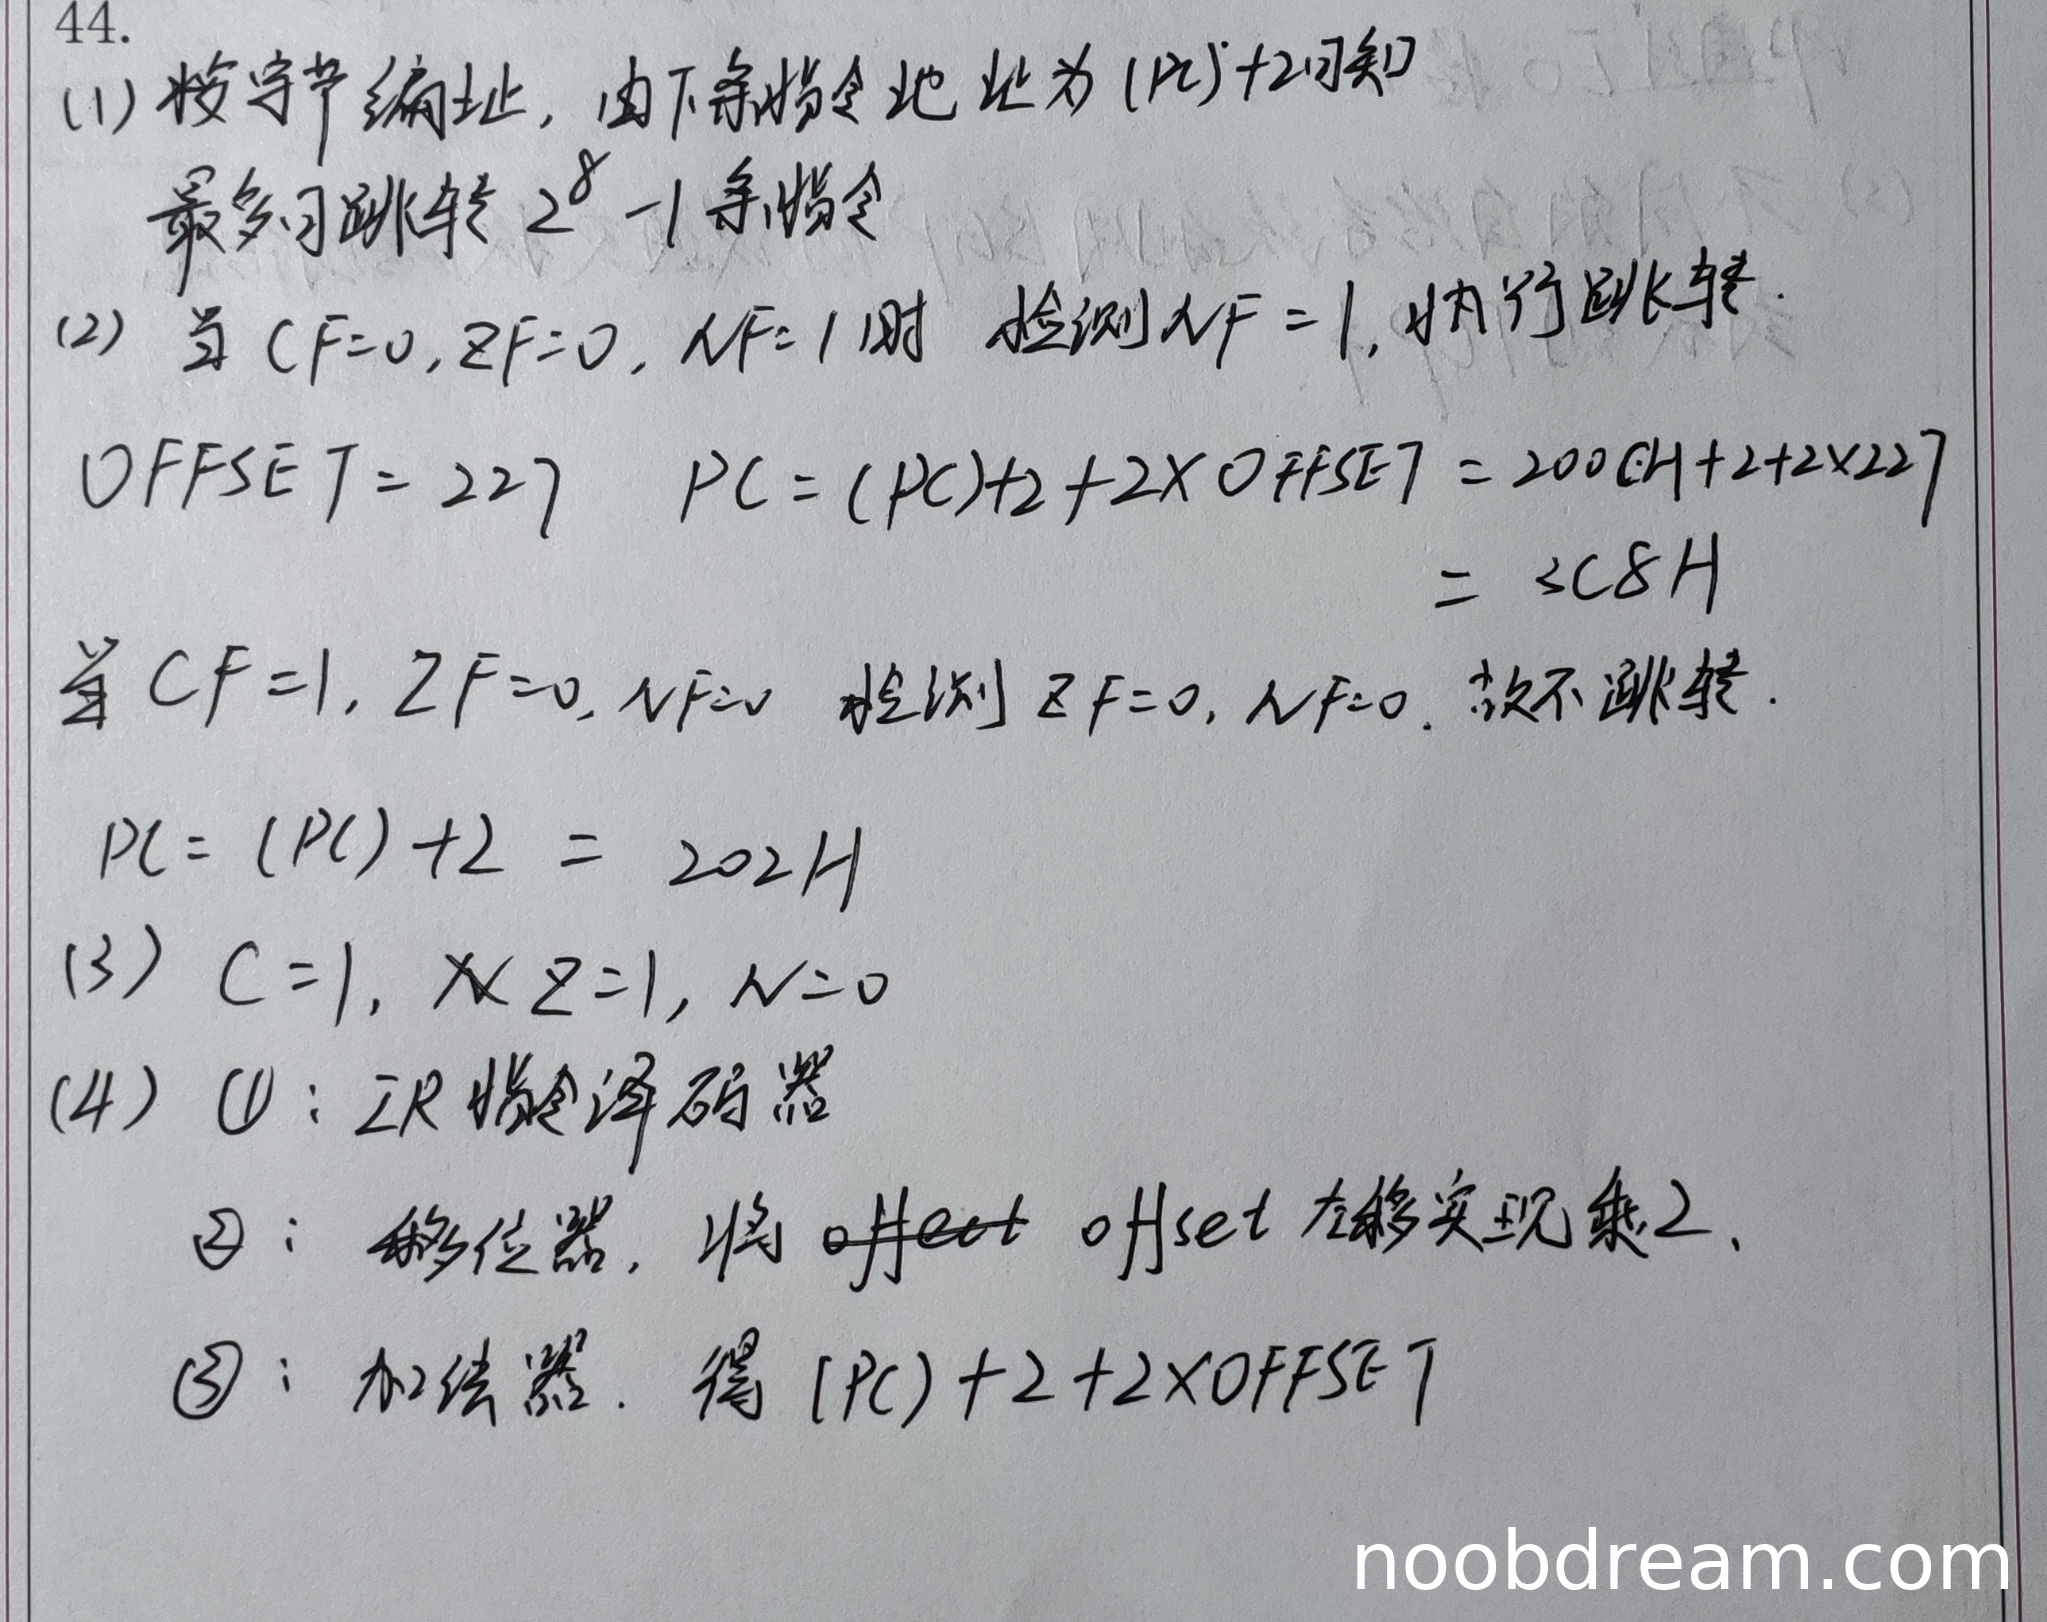 44.
(1) 按字节编址, 由下条指令地址为 (PC)+2可知
最多可跳转 2⁸ -1 条指令
(2) 当 CF=0, ZF=0, NF=1时 检测NF=1, 执行跳转.
OFFSET = 227 PC = (PC)+2+2×OFFSET = 200CH+2+2×227
= 3C8H
当 CF=1, ZF=0, NF=0 检测 ZF=0, NF=0. 故不跳转.
PC = (PC)+2 = 202H
(3) C=1, Z=1, N=0
(4) ①: IR 指令译码器
②: 移位器, 将 offset 左移实现乘2.
③: 加法器. 得 (PC)+2+2×OFFSET
noobdream.com